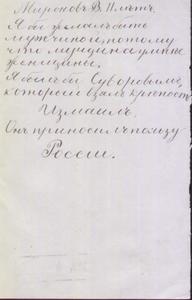 Мироновъ В. П лѣтъ.
Я бы желалъ быть
мужчиной, потому
что мужчина умнѣе
женщины.
Я былъ бы Суворовымъ,
который взялъ крѣпость
Измаилъ.
Онъ приносилъ пользу
Россіи.